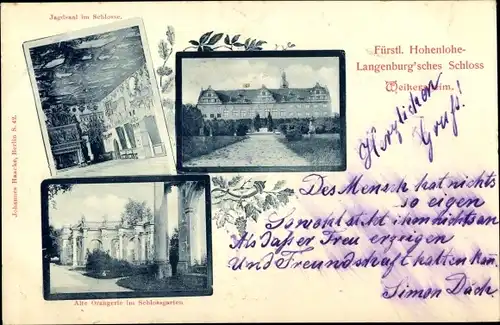 Jagdsaal im Schlosse.
Fürstl. Hohenlohe-
Langenburg'sches Schloss
Weikersheim.
Herzlichen
Gruß!
Des Mensch hat nichts
so eigen
So wohl steht ihm nichts an
Als daß er Treu erzeigen
Und Freundschaft halten kann.
Simon Dach
Alte Orangerie im Schlossgarten
Johannes Haacke, Berlin S. 42.